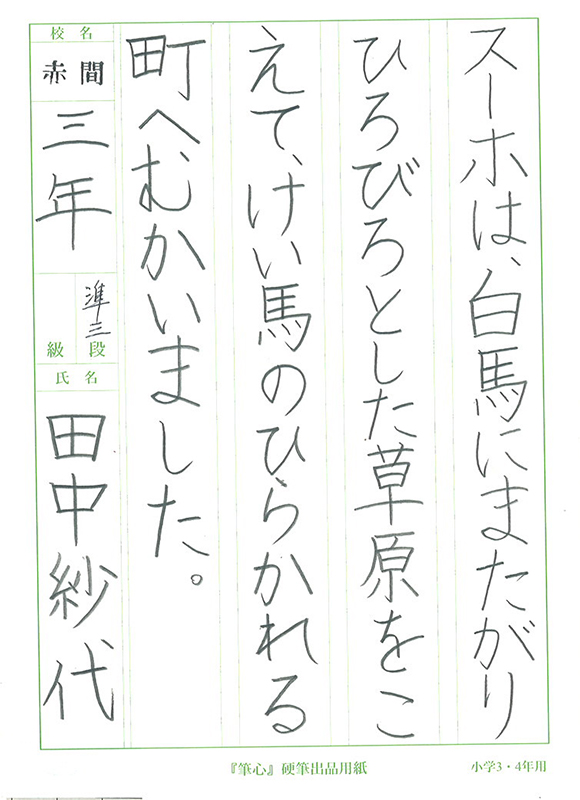 スーホは、白馬にまたがり
ひろびろとした草原をこ
えて、けい馬のひらかれる
町へむかいました。
校名
赤間
三年
準三
級 段
氏名
田中紗代
『筆心』硬筆出品用紙
小学3・4年用